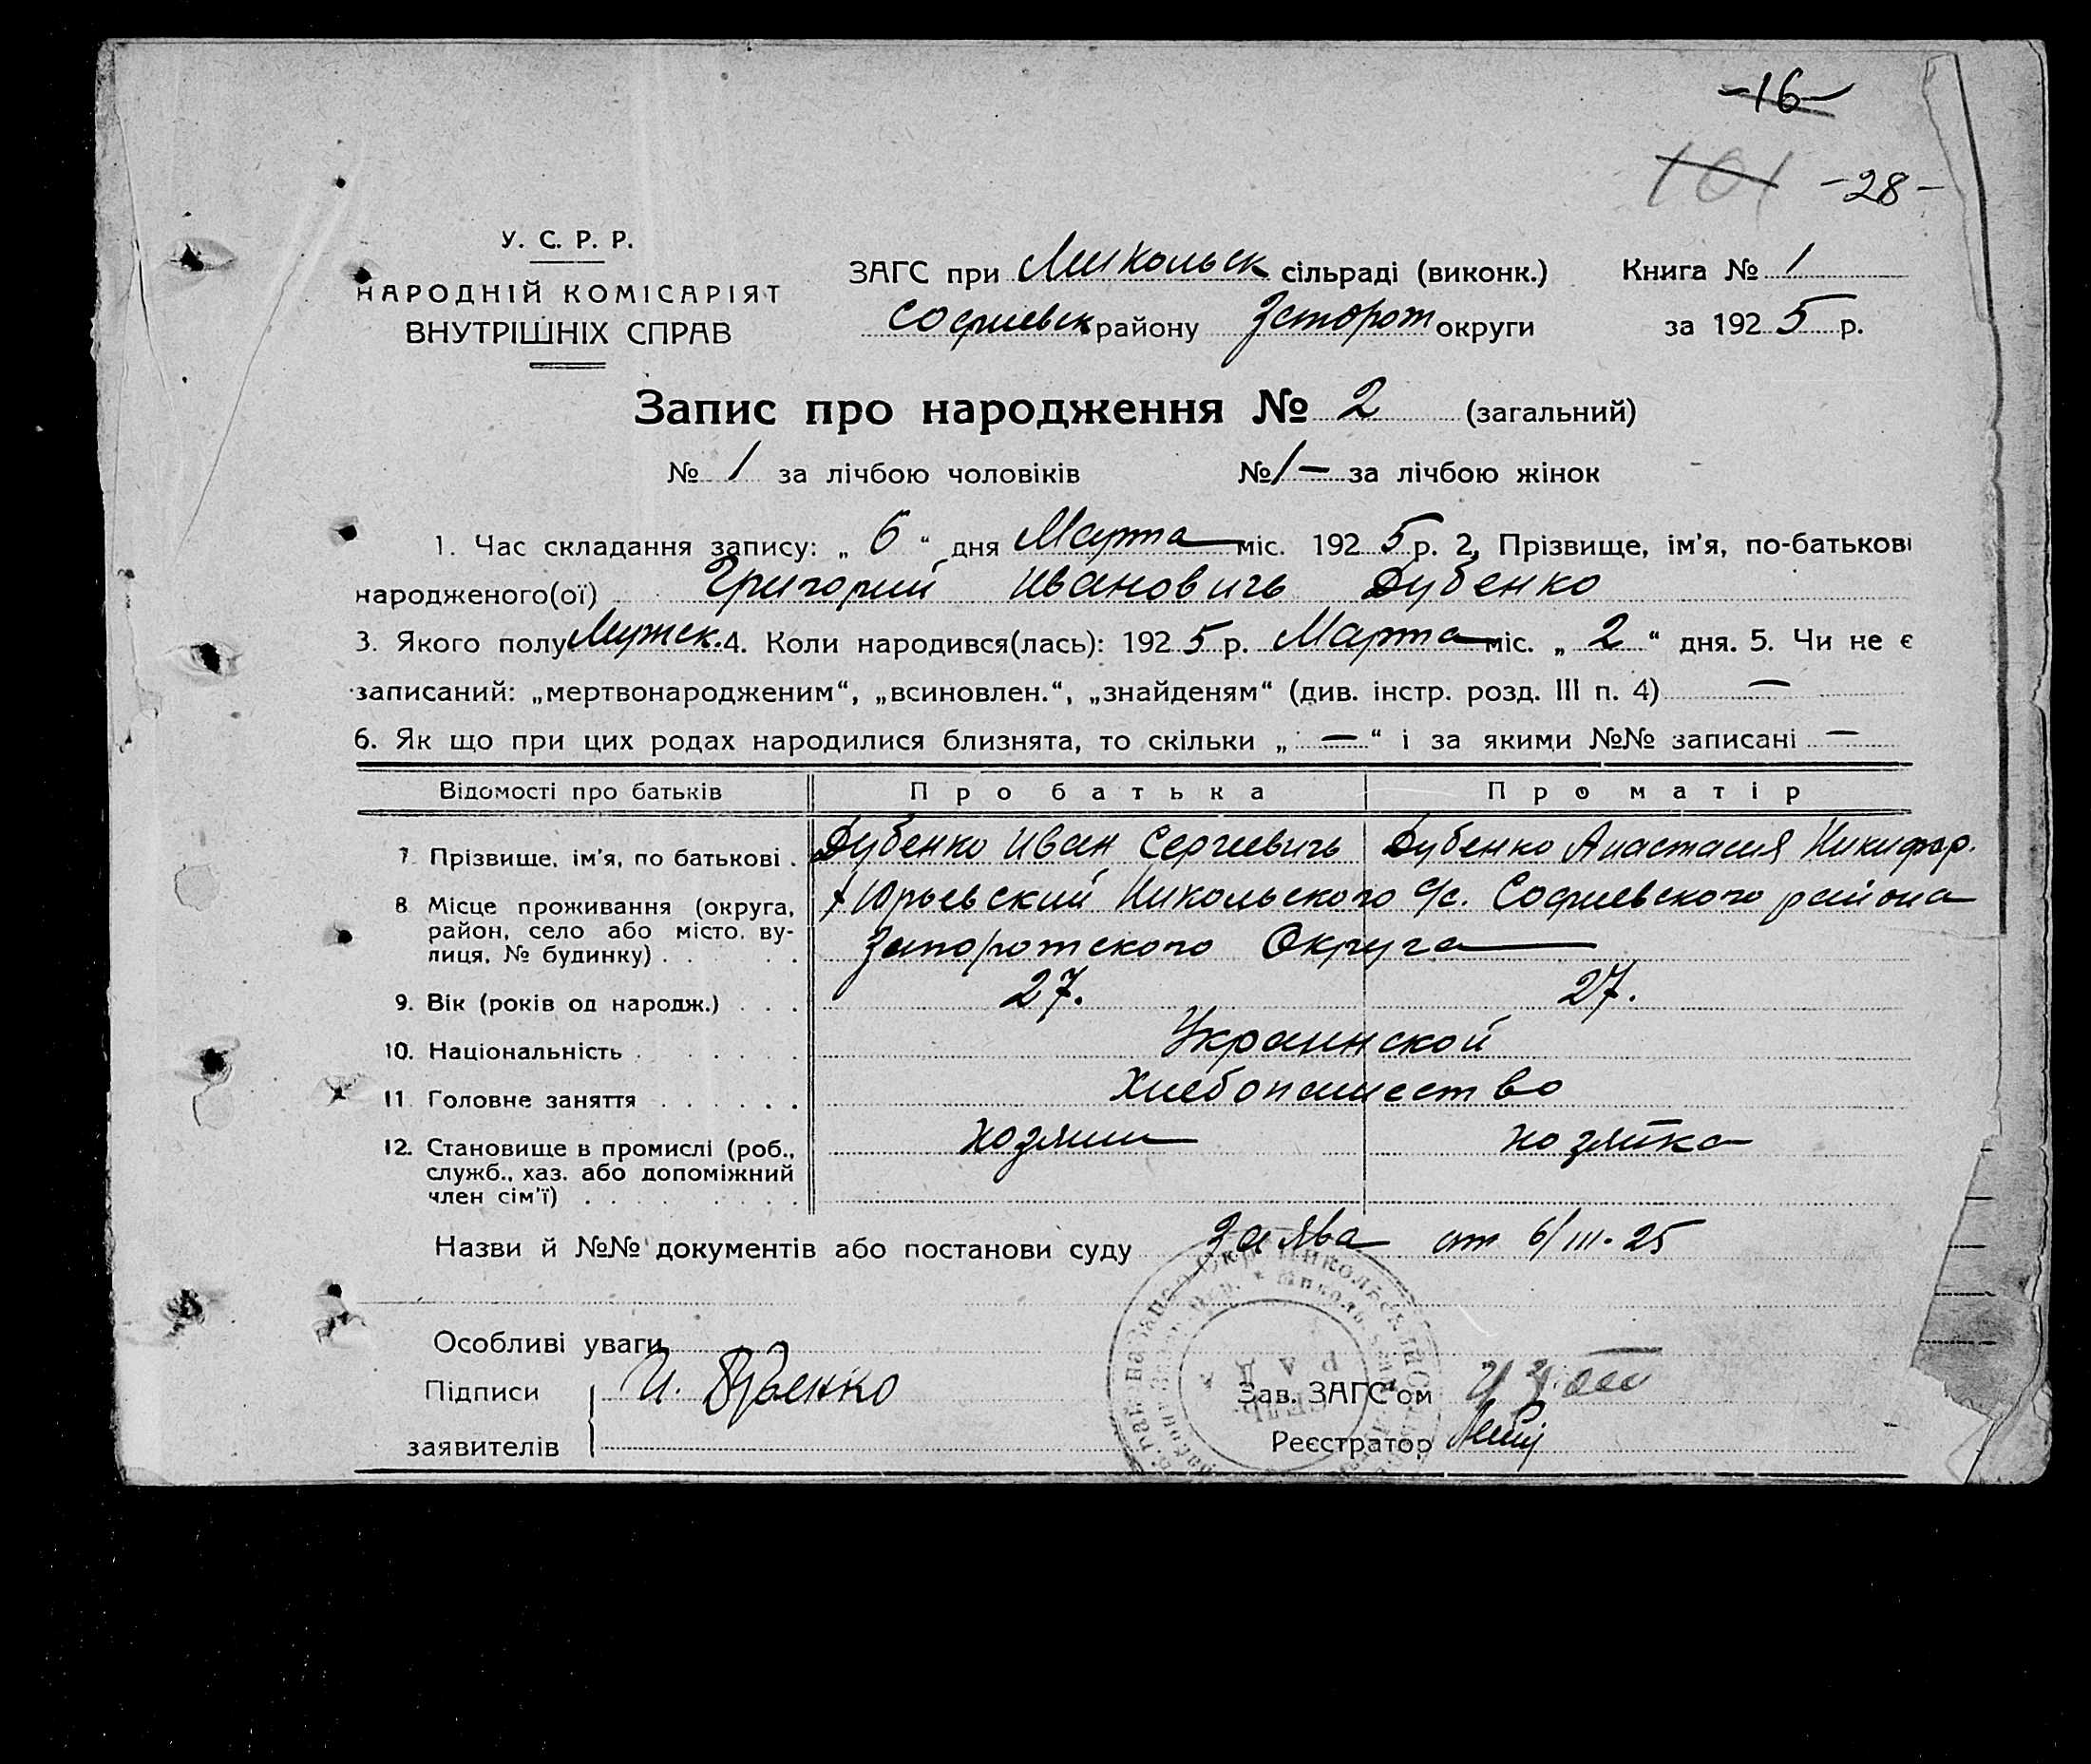 -16-
101 -28-
У. С. Р. Р.
НАРОДНІЙ КОМІСАРІЯТ
ВНУТРІШНІХ СПРАВ
ЗАГС при Микольск сільраді (виконк.) Книга № 1
Софиевск району Запорож округи за 1925 р.
Запис про народження № 2 (загальний)
№ 1 за лічбою чоловіків №1 — за лічбою жінок
1. Час складання запису: „ 6 “ дня Марта міс. 1925 р. 2, Прізвище, ім'я, по-батькові
народженого(ої) Григорий Ивановичь Дубенко
3. Якого полу Мужск. 4. Коли народився(лась): 1925 р. Марта міс. „ 2 “ дня. 5. Чи не є
записаний: „мертвонародженим“, „всиновлен.“, „знайденям“ (див. інстр. розд. III п. 4) —
6. Як що при цих родах народилися близнята, то скільки „ — “ і за якими №№ записані —
Відомості про батьків Про батька Про матір
7 Прізвище, ім'я, по батькові . Дубенко Иван Сергеевичь Дубенко Анастасия Никифор.
8 Місце проживання (округа, х Юрьевский Никольского с/с. Софиевского района
район, село або місто, ву-
лиця, № будинку) . . . . Запорожского Округа
9. Вік (років од народж.) . . . 27. 27.
10. Національність . . . . . . Украинской
11 Головне заняття . . . . . . Хлебопашество
12. Становище в промислі (роб., хозяин хозяйка
служб., хаз. або допоміжний
член сім'ї) . . . . . . . .
Назви й №№ документів або постанови суду заява от 6/III-25
Особливі уваги
Підписи И. Дубенко Зав. ЗАГС'ом
заявителів Реєстратор